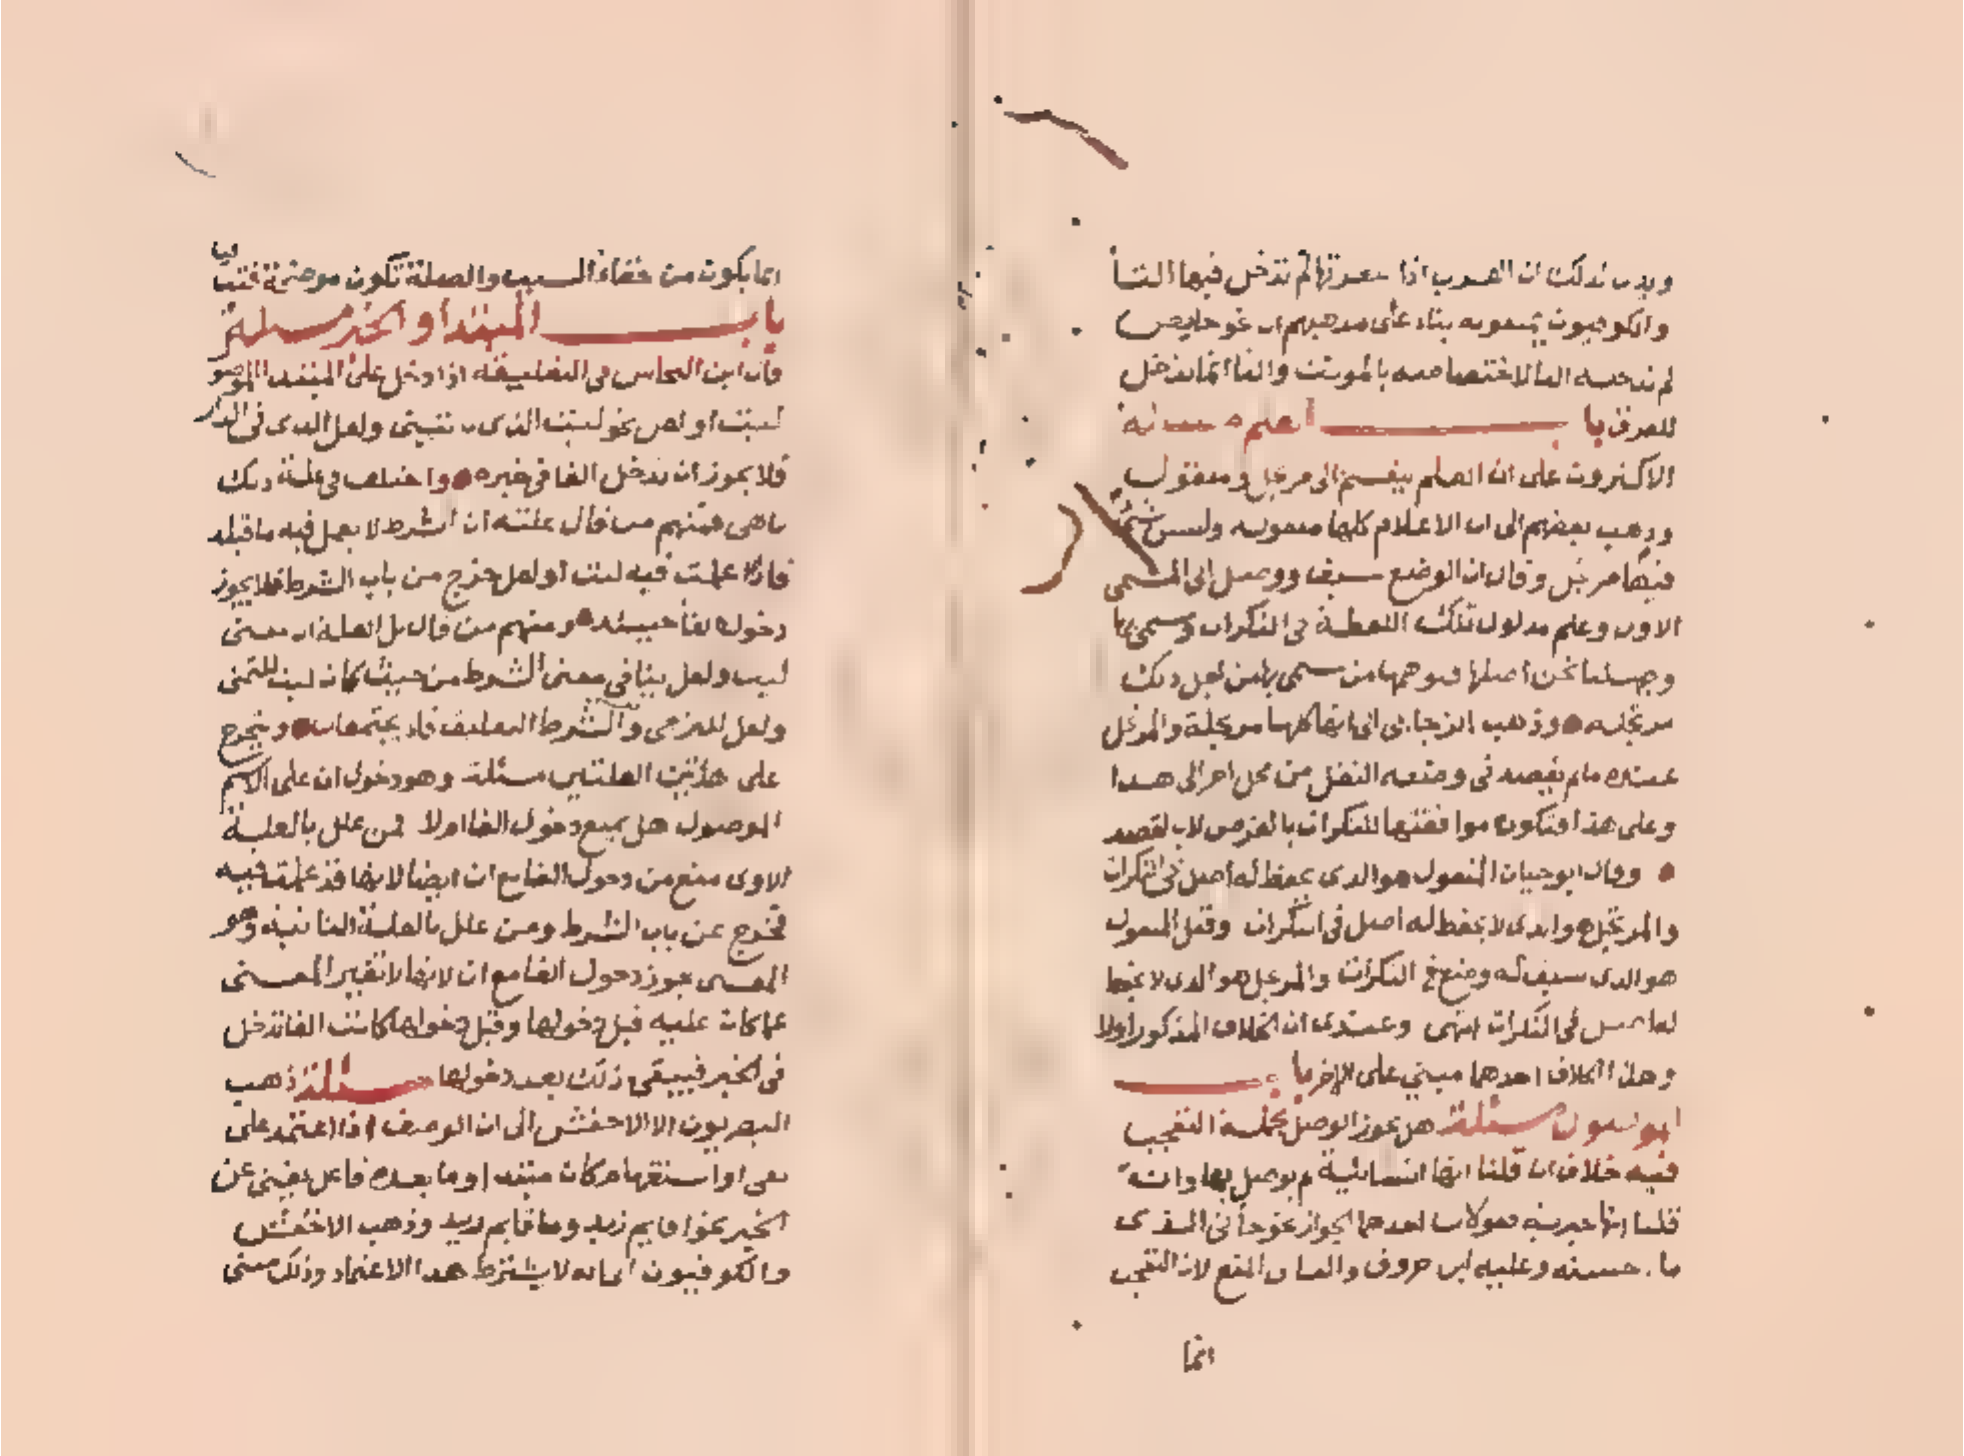 ويدل لذلك ان العرب اذا صغرتها لم تدخل فيها التا
والكوفيون يمنعونه بناء على مذهبهم ان نحو حايض
لم تدخله التا لاختصاصه بالمونث والتا انما تدخل
للفرق باب العلم مسئلة
الاكثرون على ان العلم ينقسم الى مرتجل ومنقول
وذهب بعضهم الى ان الاعلام كلها منقوله وليس شئ
فيها مرتجل وقال ان الوضع سبق ووصل الى المسمى
الاول وعلم مدلول تلك اللفظة فى النكرات وسمى بها
وجهلنا نحن اصلها فتوهمها من سمى بها من اجل ذلك
مرتجله وذهب الزجاج الى انها كلها مرتجلة والمرتجل
عنده مالم يقصد فى وضعه النقل من محل اخر الى هذا
وعلى هذا فتكون موافقتها للنكرات بالعرض لا بالقصد
وقال ابو حيان المنقول هو الذى يحفظ له اصل فى النكرات
والمرتجل هو الذى لا يحفظ له اصل فى النكرات وقيل المنقول
هو الذى سبق له وضع فى النكرات والمرتجل هو الذى لا يحفظ
له اصل فى النكرات انتهى وعندى ان الخلاف المذكور اولا
وهذا الخلاف احدهما مبني على الاخر باب
الموصول مسئلة هل يجوز الوصل بجملة التعجب
فيه خلاف ان قلنا انها انشائية لم يوصل بها وان
قلنا انها خبرية فقولان احدهما الجواز نحو جانى الذى
ما احسنه وعليه ابن خروف والثانى المنع لان التعجب
انما
انما يكون من خفاء السبب والصلة تكون موضحة فتنا
فيا
باب المبتدا والخبر مسئلة
قال ابن النحاس فى التعليقة اذا دخل على المبتدا الموصو
ليت او لعل نحو ليت الذى ياتينى ولعل الذى فى الدار
فلا يجوز ان تدخل الفا فى خبره واختلف فى علة ذلك
ماهى فمنهم من قال علته ان الشرط لا يعمل فيه ما قبله
فاذا عملت فيه ليت او لعل خرج من باب الشرط فلا يجوز
دخول الفا حينئذ ومنهم من قال بل العلة ان معنى
ليت ولعل ينافى معنى الشرط من حيث كان ليت للتمنى
ولعل للترجى والشرط التعليق فلا يجتمعان ويتخرج
على هذين العلتين مسئلة وهو دخول ان على الاسم
الموصول هل يمنع دخول الفا اولا فمن علل بالعلة
الاولى منع من دخول الفا مع ان ايضا لانها قد عملت فيه
فخرج عن باب الشرط ومن علل بالعلة الثانية وهو
المعنى جوز دخول الفا مع ان لانها لا تغير المعنى
عما كان عليه قبل دخولها وقبل دخولها كانت الفا تدخل
فى الخبر فيبقى ذلك بعد دخولها مسئلة ذهب
البصريون الا الاخفش الى ان الوصف اذا اعتمد على
نفى او استفهام كان مبتدا وما بعده فاعل يغنى عن
الخبر نحو اقايم زيد وما قايم زيد وذهب الاخفش
والكوفيون الى انه لا يشترط هذا الاعتماد وذلك مبنى